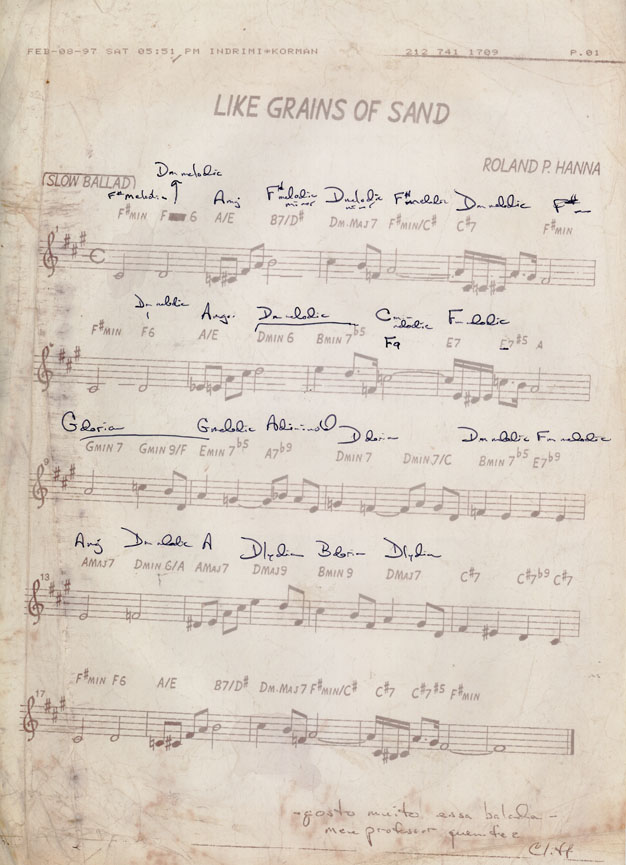 FEB-08-97 SAT 05:51 PM INDRIMI*KORMAN 212 741 1709 P.01
LIKE GRAINS OF SAND
ROLAND P. HANNA
SLOW BALLAD
Dm melodic
F#melodic Amaj F#melodic minor Dmelodic minor F#melodic Dm melodic F#
F#MIN F 6 A/E B7/D# DM.MAJ7 F#MIN/C# C#7 F#MIN
Dm melodic Dm melodic F melodic
F#MIN F6 A/E DMIN 6 BMIN 7b5 E7 E7#5 A
G dorian G melodic D dorian Dm melodic Fm melodic
9
GMIN 7 GMIN 9/F EMIN 7b5 A7b9 DMIN 7 DMIN 7/C BMIN 7b5 E7b9
Amaj Dm melodic A D lydian B dorian D lydian
AMAJ7 DMIN 6/A AMAJ7 DMAJ9 BMIN 9 DMAJ7 C#7 C#7b9 C#7
13
F#MIN F6 A/E B7/D# DM.MAJ7 F#MIN/C# C#7 C#7#5 F#MIN
17
-gosto muito essa balada-
meu professor
Cliff